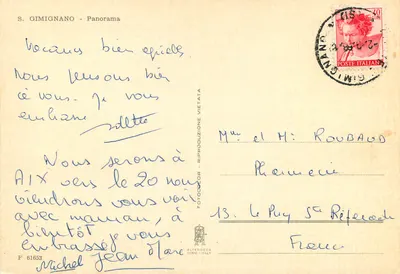 S. GIMIGNANO - Panorama
Vacances bien
Nous pensons bien
à vous. Je vous
embrasse
Nous serons à
AIX vers le 20 nous
viendrons vous voir
avec maman, à
bientôt je vous
embrasse
Michel Jean Marc
F 61652
FOTOCOLOR - RIPRODUZIONE VIETATA
40
POSTE ITALIANE
GIMIGNANO
Mme et Mr ROUBAUD
Pharmacie
13. Le Puy Ste Réparade
France